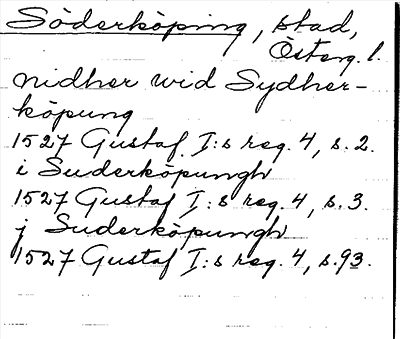 Söderköping, stad,
Österg. l.
nidher wid Sydher-
köpung
1527 Gustaf I:s reg. 4, s. 2.
i Suderköpungh
1527 Gustaf I:s reg. 4, s. 3.
j Suderköpungh
1527 Gustaf I:s reg. 4, s. 93.